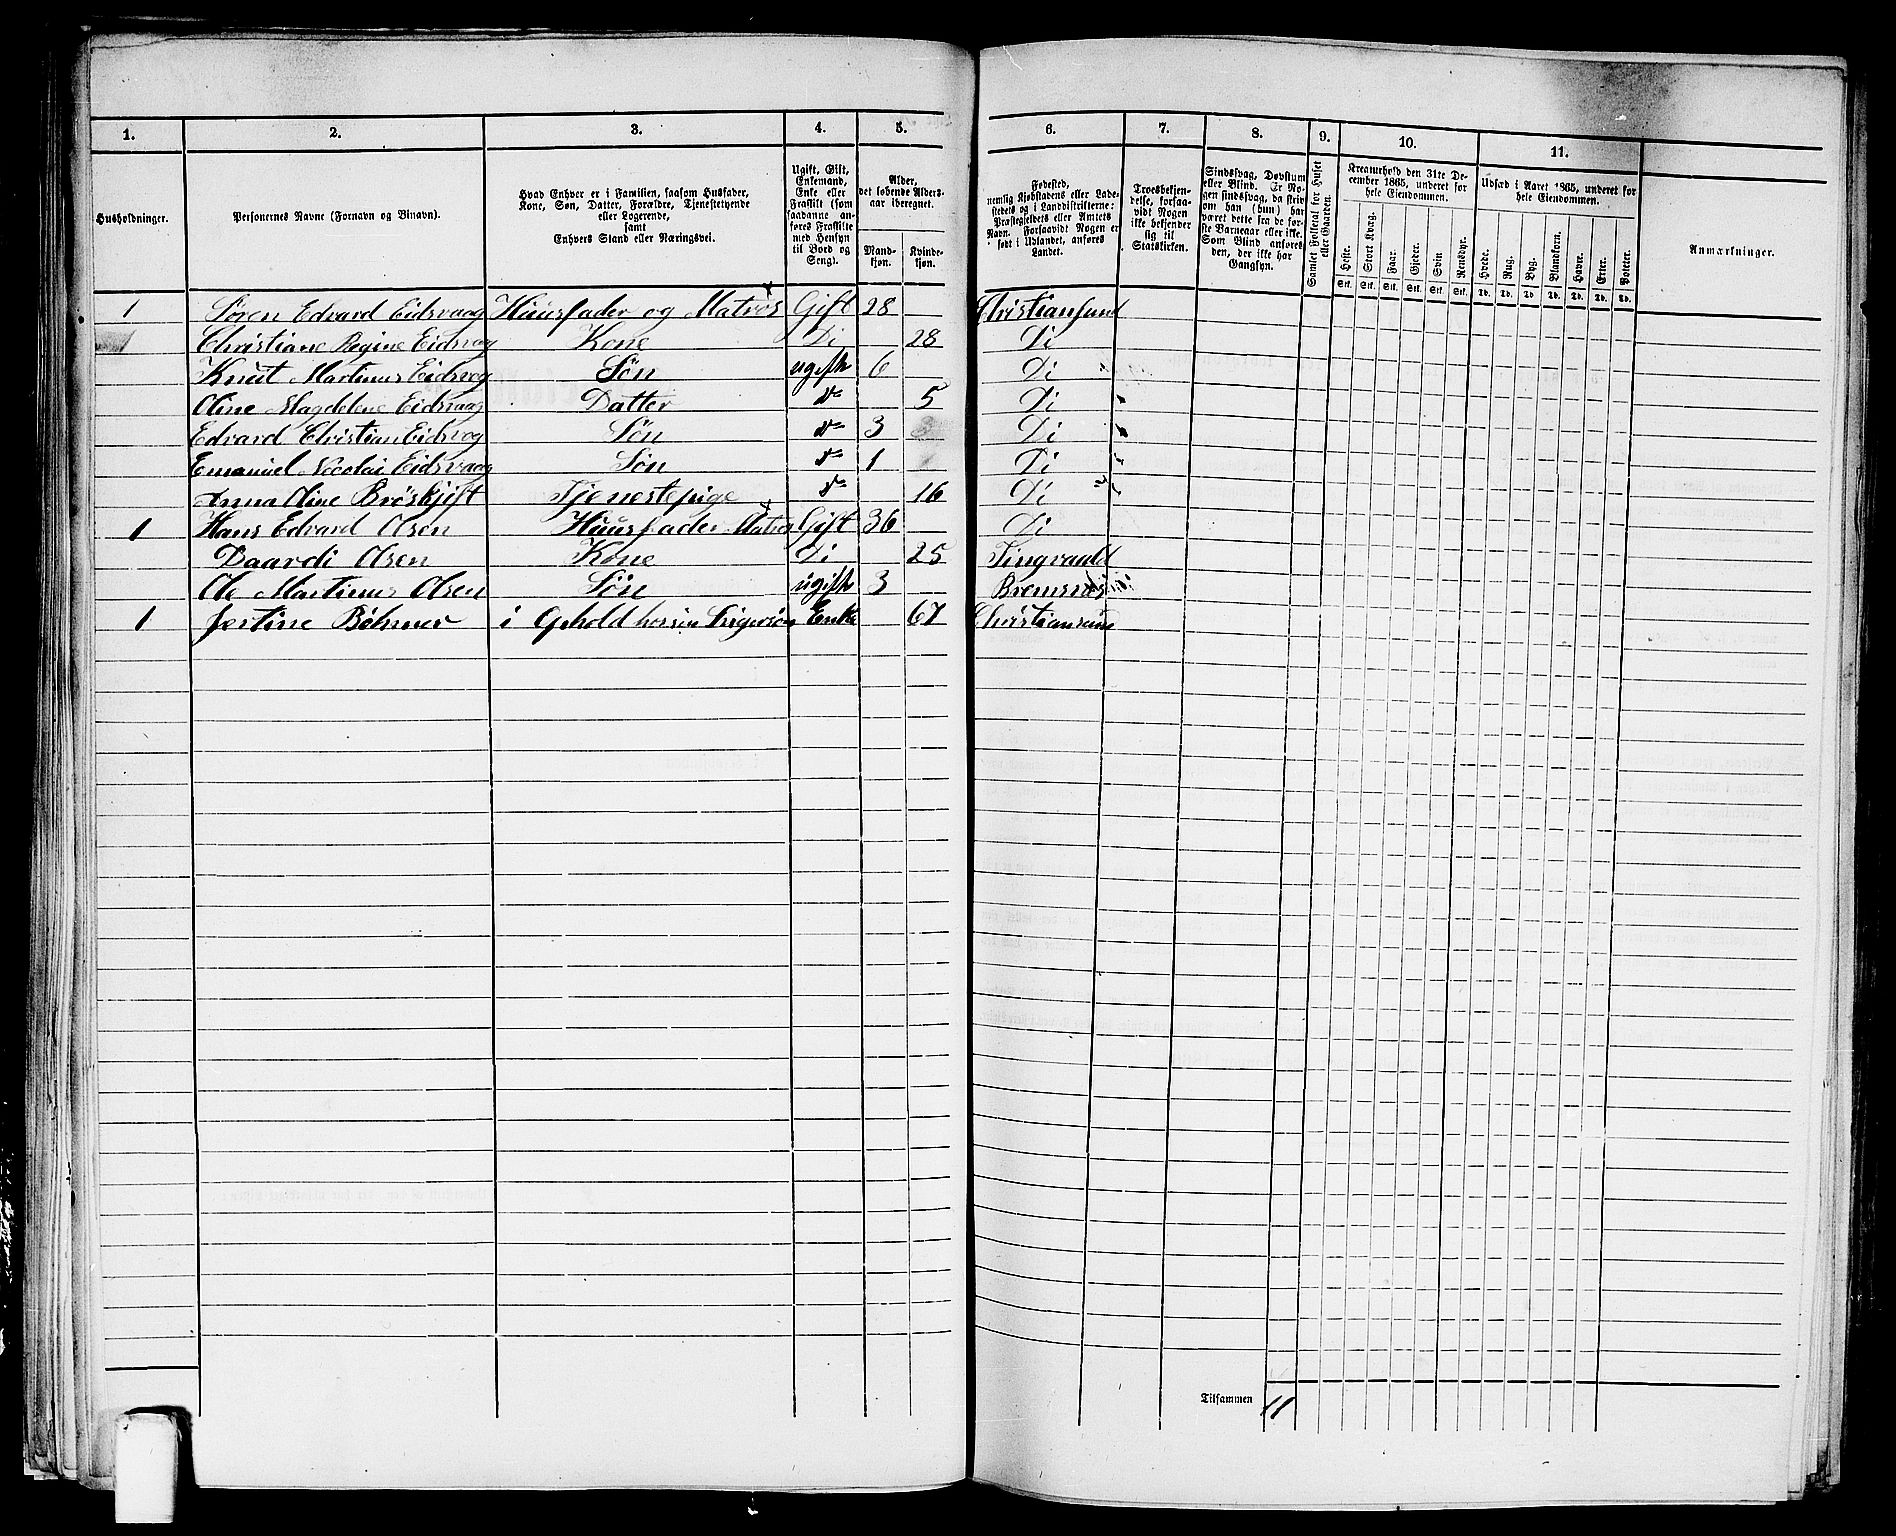 1. 2. 3. 4. 5. 6. 7. 8. 9. 10. 11.
Husholdninger.
Personernes Navne (Fornavn og Binavn).
Hvad Enhver er i Familien, saasom Husfader,
Kone, Søn, Datter, Forældre, Tjenestetyende
eller Logerende,
samt
Enhvers Stand eller Næringsvei.
Ugift, Gift,
Enkemand,
Enke eller
Fraskilt (som
saadanne an-
føres Fraskilte
med Hensyn
til Bord og
Seng).
Alder,
det løbende Alders-
aar iberegnet.
Mand-
kjøn.
Kvinde-
kjøn.
Fødested,
nemlig Kjøbstadens eller Lade-
stedets og i Landdistrikterne:
Præstegjeldets eller Amtets
Navn. Forsaavidt Nogen er
født i Udlandet, anføres
Landet.
Troesbekjen-
delse, forsaa-
vidt Nogen
ikke bekjender
sig til
Statskirken.
Sindssvag, Døvstum
eller Blind. Er No-
gen sindssvag, da skriv
om han (hun) har
været dette fra de før-
ste Barneaar eller ikke.
Som Blind anføres
den, der ikke har
Gangsyn.
Samlet Folketal for Huset
eller Gaarden.
Kreaturhold den 31te De-
cember 1865, underet for
hele Eiendommen.
Heste. Stort Kvæg. Faar. Gjeder. Svin Rensdyr.
Stk. Stk. Stk. Stk. Stk. Stk.
Udsæd i Aaret 1865, underet for
hele Eiendommen.
Hvede. Rug. Byg. Blandkorn. Havre. Erter. Poteter.
Td. Td. Td Td. Td. Td. Td.
Anmærkninger.
1 Søren Edvard Eidsvaag Huusfader og Matros Gift 28 Christiansund
Christiane Regine Eidsvag Kone Di 28 Di
Knut Martinus Eidsvog Søn ugift 6 Di
Oline Magdelene Eidsvaag Datter do 5 Di
Edvard Christian Eidsvog Søn do 3 Di
Emanuel Nicolai Eidsvaag Søn do 1 Di
Anna Oline Brøskjift Tjenestepige do 16 Di
1 Hans Edvard Olsen Huusfader Matros Gift 36 Di
Daardi Olsen Kone Di 25 Tingvaald
Ole Martinus Olsen Søn ugift 3 Bremsnæs
1 Jertine Bøhmer i Ophold hos sin Enke 67 Christiansund
Tilsammen 11